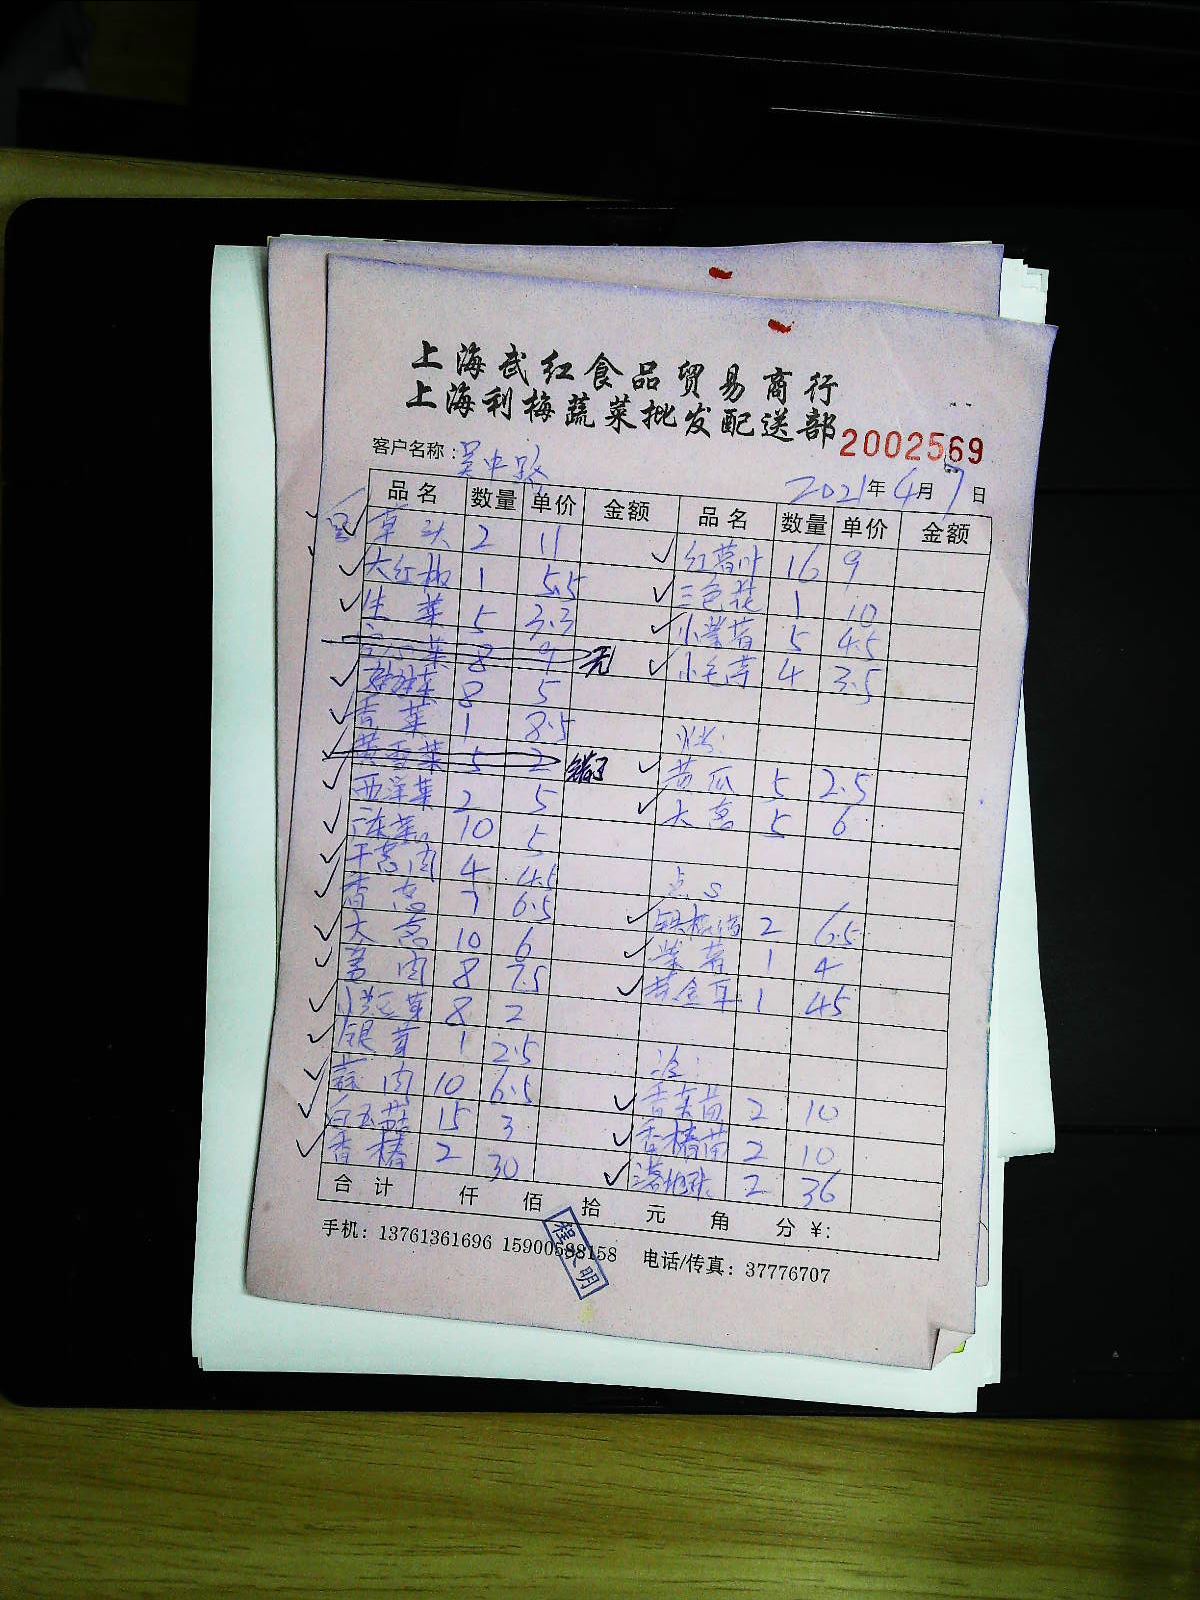 上海武红食品贸易商行
上海利梅蔬菜批发配送部 2002569
客户名称：吴中路 2021年4月7日
品名 数量 单价 金额 品名 数量 单价 金额
草头 2 11 红薯叶 16 9
大红椒 1 5.5 三色花 1 10
生菜 5 3.3 小紫薯 5 4.5
菜 8 9 无 小毛芋 4 3.5
8 5
香菜 1 8.5
菜 5 2 错了 苦瓜 5 2.5
西洋菜 2 5 大葱 5 6
广东菜心 10 5
干葱肉 4 4.5 点心
香葱 7 6.5 铁棍山药 2 6.5
大葱 10 6 紫薯 1 4
姜肉 8 7.5 黄金耳 1 45
小菜 8 2
银芽 1 2.5 冷:
蒜肉 10 6.5 苗 2 10
白玉菇 15 3 香椿苗 2 10
香椿 2 30 2 36
合计 仟 佰 拾 元 角 分 ¥:
手机：13761361696 15900588158 电话/传真：37776707
程 明